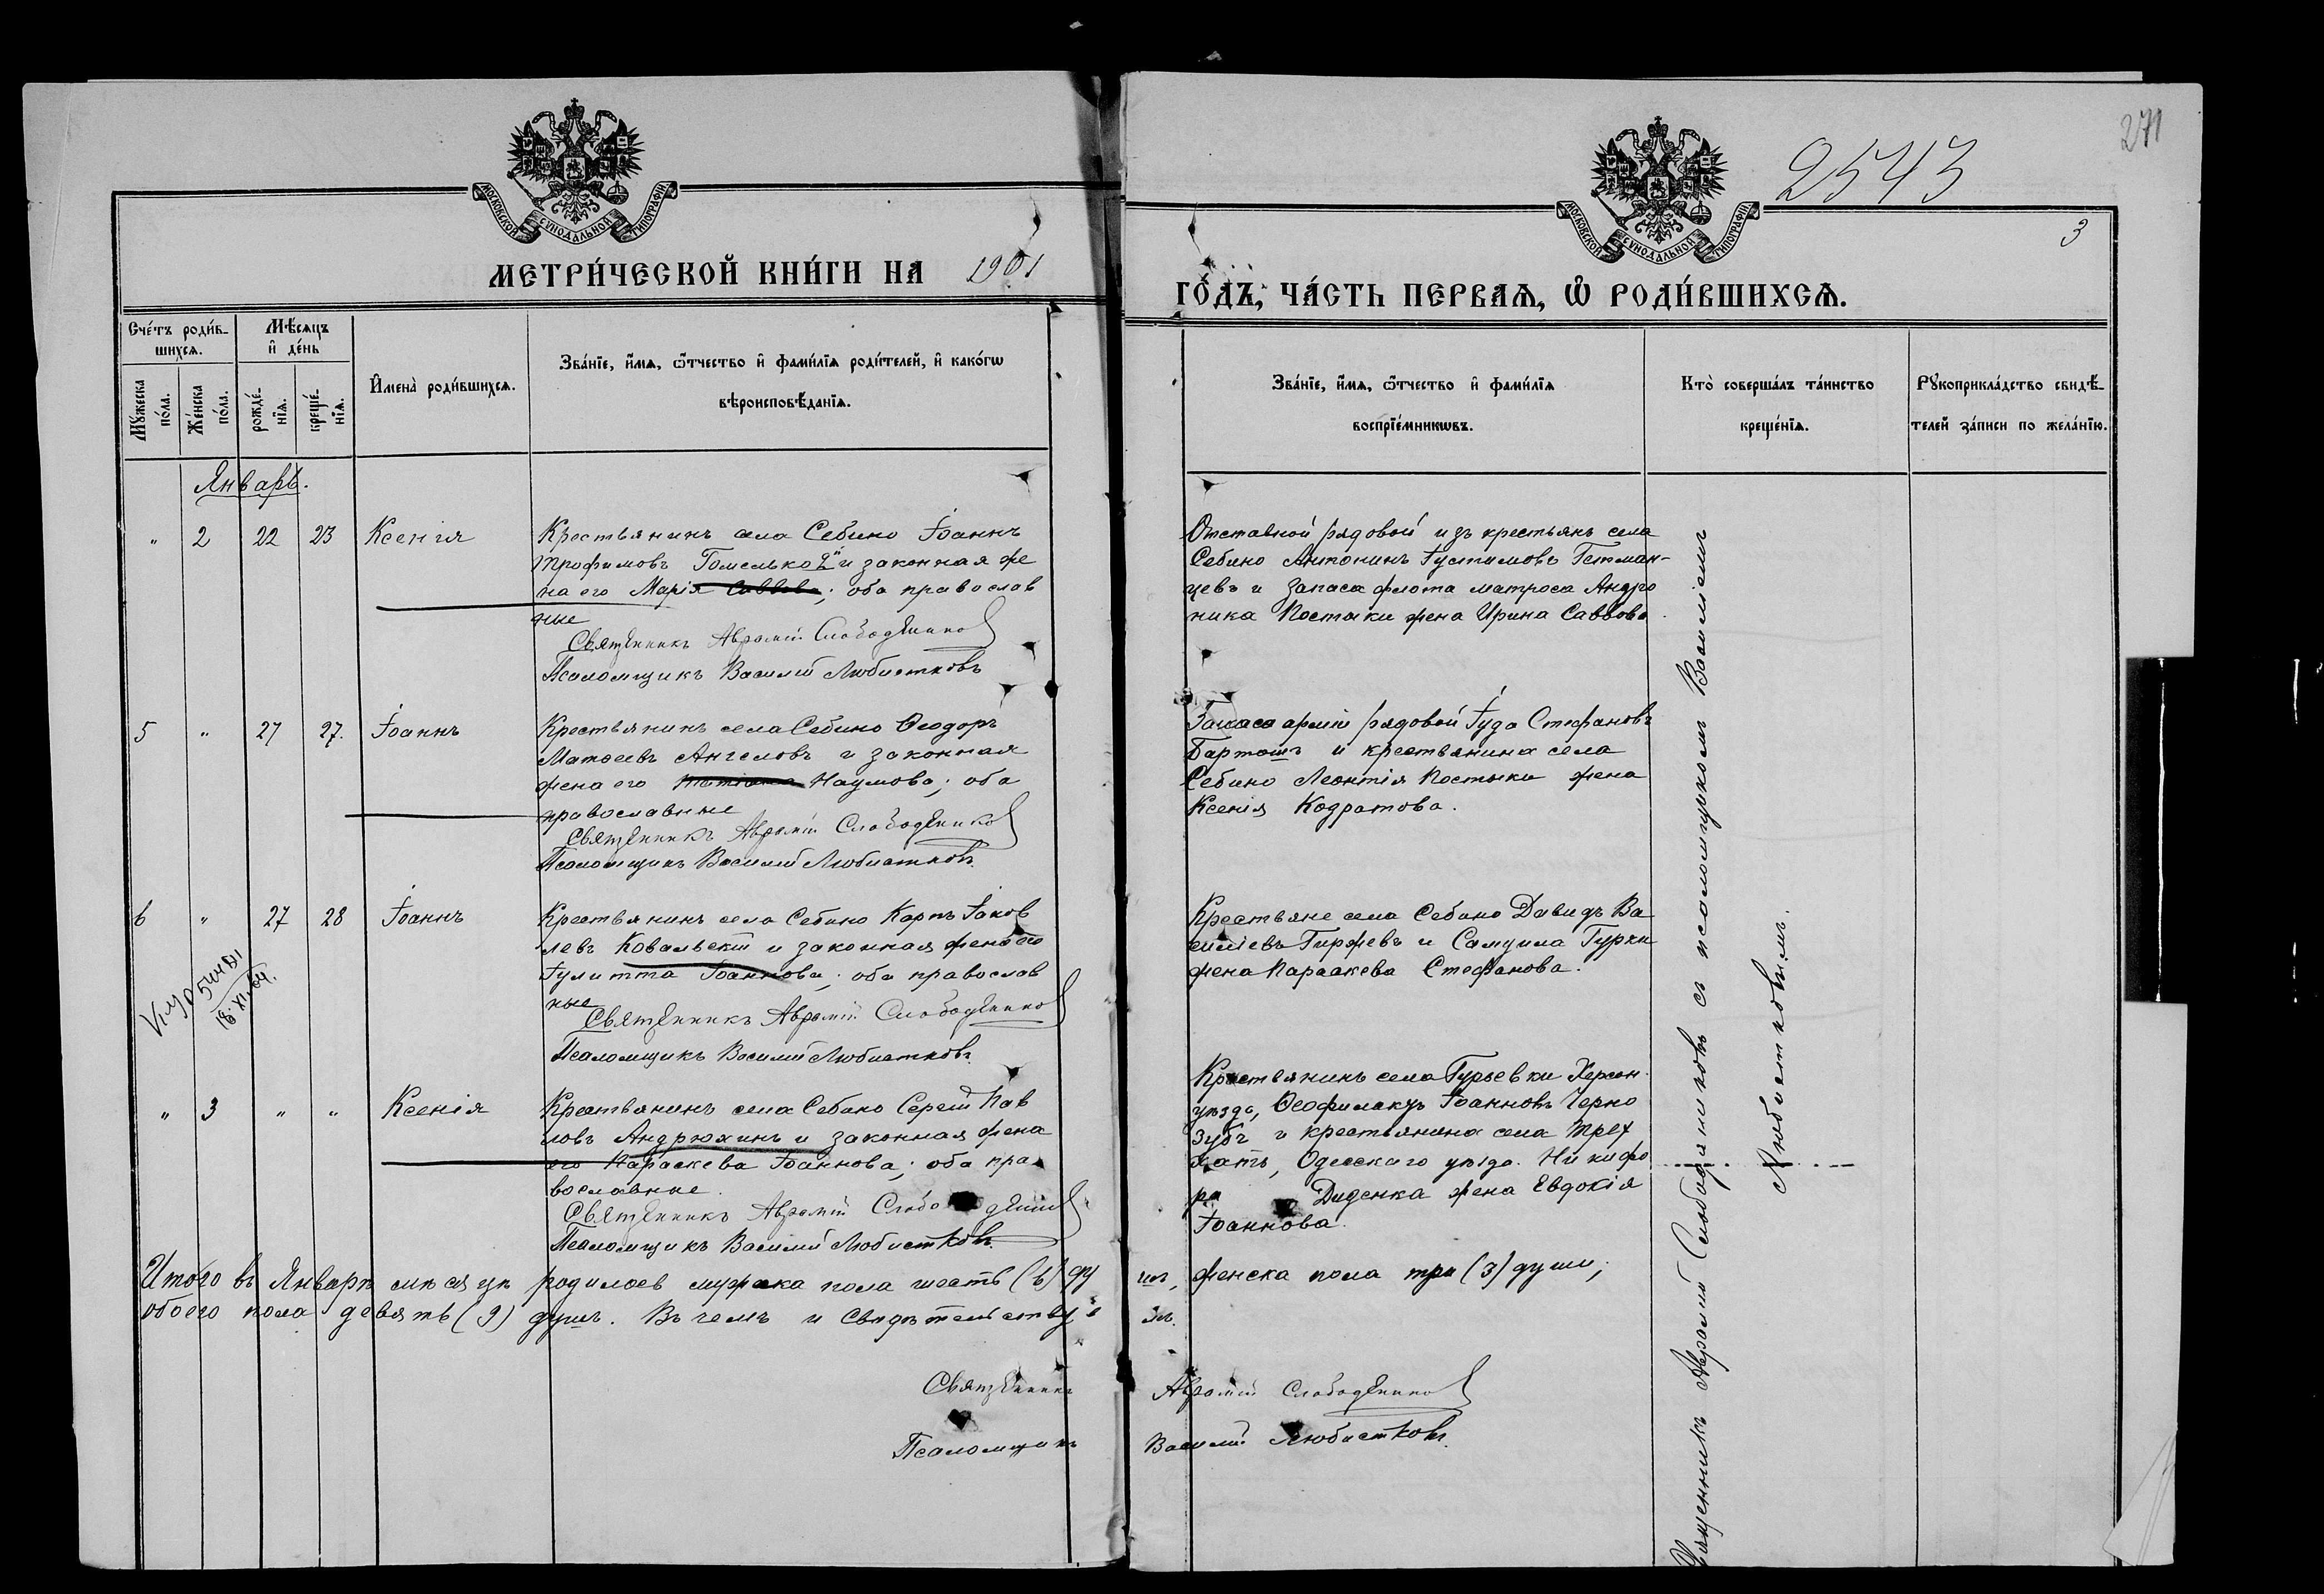 271
2543
3
МОСКОВСКОЙ СѴНОДАЛЬНОЙ ТИПОГРАФІИ
МОСКОВСКОЙ СѴНОДАЛЬНОЙ ТИПОГРАФІИ
МЕТРИ́ЧЕСКОЙ КНИ́ГИ НА 1901
ГО́ДЪ, ЧА́СТЬ ПЕРВАѦ, Ѡ РОДИ́ВШИХСѦ.
Сче́тъ роди́в-
шихсѧ.
Мѣ́сѧцъ
и҆ де́нь
Мꙋ́жеска
по́ла.
Же́нска
по́ла.
рожде́-
нїѧ.
креще́-
нїѧ.
И҆мена̀ роди́вшихсѧ.
Зва́нїе, и҆́мѧ, ѻ҆́тчество и҆ фами́лїѧ роди́телей, и҆ како́гѡ
вѣроисповѣ́данїѧ.
Зва́нїе, и҆́мѧ, ѻ҆́тчество и҆ фами́лїѧ
воспрїе́мникѡвъ.
Кто̀ соверша́лъ та́инство
креще́нїѧ.
Рꙋкоприкла́дство свидѣ́-
телей за́писи по жела́нїю.
Январь.
" 2 22 23 Ксенія
Крестьянинъ села Себино Іоаннъ
Трофимовъ Гомелько 2й и законная же
на его Марія Саввова; оба православ
ные
Священникъ Аврамій Слободяников
Псаломщикъ Василій Любистковъ
Отставной рядовой изъ крестьянъ села
Себино Антонинъ Іустимовъ Гетман-
цевъ и запаса флота матроса Андро
ника Постики жена Ирина Саввова.
5 " 27 27. Іоаннъ
Крестьянинъ села Себино Ѳеодоръ
Матѳеевъ Ангеловъ и законная
жена его Татіана Наумова; оба
православные
Священникъ Аврамій Слободяников
Псаломщикъ Василій Любистковъ.
Запаса арміи рядовой Іуда Стефановъ
Бартошъ и крестьянина села
Себино Леонтія Постики жена
Ксенія Кодратова.
6 " 27 28 Іоаннъ
Крестьянинъ села Себино Карпъ Іаков
левъ Ковальскій и законная жена его
Іулитта Іоаннова; оба православ
ные
Священникъ Аврамій Слободяников
Псаломщикъ Василій Любистковъ.
18.XI.64.
Крестьяне села Себино Давидъ Ва
силіевъ Гиржевъ и Самуила Гурки
жена Параскева Стефанова.
" 3 " " Ксенія
Крестьянинъ села Себино Сергій Пав
ловъ Андрюхинъ и законная жена
его Параскева Іоаннова; оба пра
вославные.
Священникъ Аврамій Слободяников
Псаломщикъ Василій Любистковъ.
Крестьянинъ села Гурьевки Херсон.
уѣзда, Ѳеофилактъ Іоанновъ Черно
зубъ и крестьянина села Трех
хатъ, Одесскаго уѣзда. Никифо
ра Диденка жена Евдокія
Іоаннова.
Итого въ Январѣ мѣсяцѣ родилось мужеска пола шесть (6) душъ, женска пола три (3) души;
обоего пола девять (9) душъ. Въ чемъ и свидѣтельствуемъ.
Священникъ Аврамій Слободяников
Псаломщикъ Василій Любистковъ.
Священникъ Аврамій Слободяниковъ съ псаломщикомъ Василіемъ
Любистковымъ.